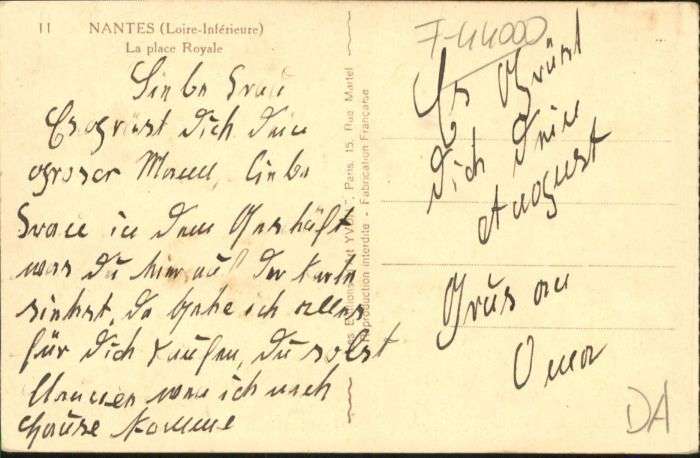 11 NANTES (Loire-Inférieure)
La place Royale
Liebe Frau
Es grüst Dich Dein
groser Mann, Liebe
Frau in dem Geshäft
was du hier auf der Karte
siehst, da gehe ich alles
für Dich kaufen, du solst
staunen wen ich nach
Hause komme
Les Editions d'Art YVON, Paris, 15, Rue Martel
Reproduction interdite - Fabrication Française
7-44000
Es Grüst
Dich Dein
August
Grus an
Oma
DA